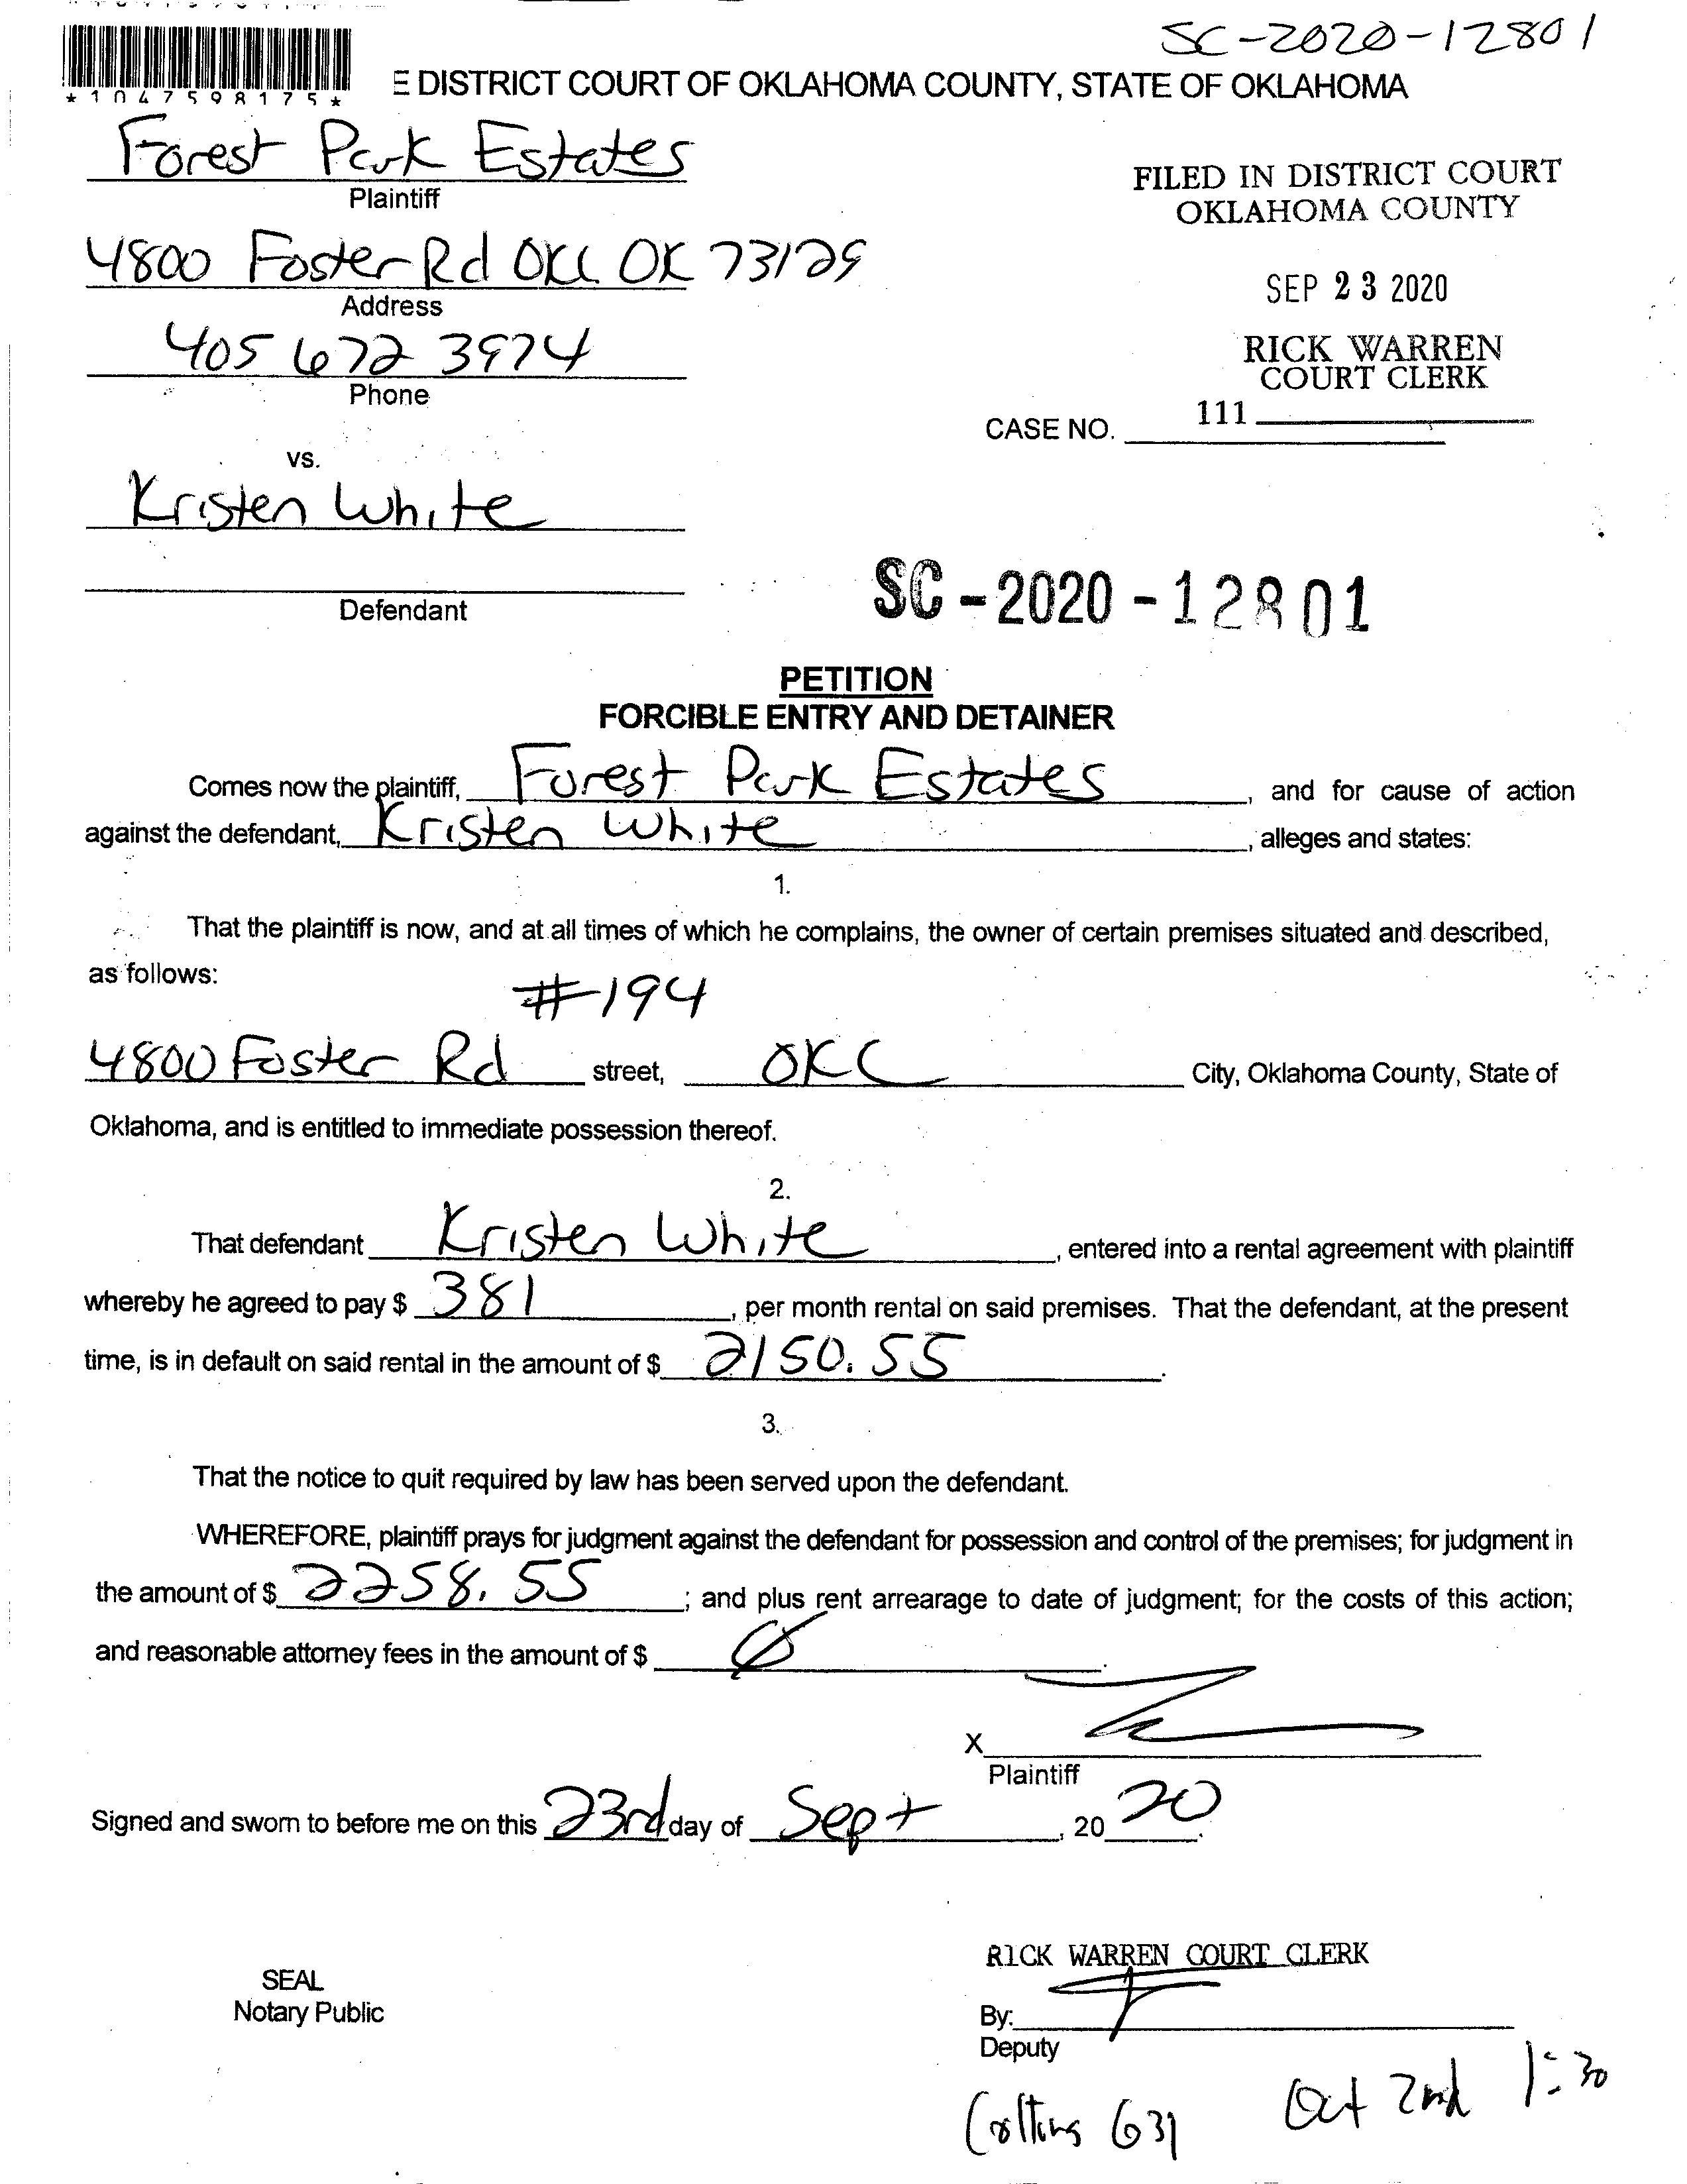 SC-2020-12801
*1047598175*
E DISTRICT COURT OF OKLAHOMA COUNTY, STATE OF OKLAHOMA
Forest Park Estates
Plaintiff
FILED IN DISTRICT COURT
OKLAHOMA COUNTY
4800 Foster Rd OKC OK 73129
Address
SEP 23 2020
405 672 3974
Phone
RICK WARREN
COURT CLERK
111
CASE NO.
vs.
Kristen White
Defendant
SC-2020-12801
PETITION
FORCIBLE ENTRY AND DETAINER
Comes now the plaintiff, Forest Park Estates, and for cause of action
against the defendant, Kristen White, alleges and states:
1.
That the plaintiff is now, and at all times of which he complains, the owner of certain premises situated and described,
as follows:
#194
4800 Foster Rd street, OKC City, Oklahoma County, State of
Oklahoma, and is entitled to immediate possession thereof.
2.
That defendant Kristen White, entered into a rental agreement with plaintiff
whereby he agreed to pay $ 381, per month rental on said premises. That the defendant, at the present
time, is in default on said rental in the amount of $ 2150.55.
3.
That the notice to quit required by law has been served upon the defendant.
WHEREFORE, plaintiff prays for judgment against the defendant for possession and control of the premises; for judgment in
the amount of $ 2258.55; and plus rent arrearage to date of judgment; for the costs of this action;
and reasonable attorney fees in the amount of $ Ø.
X
Plaintiff
Signed and sworn to before me on this 23rd day of Sept, 20 20.
RICK WARREN COURT CLERK
SEAL
Notary Public
By:
Deputy
631 Oct 2nd 1:30